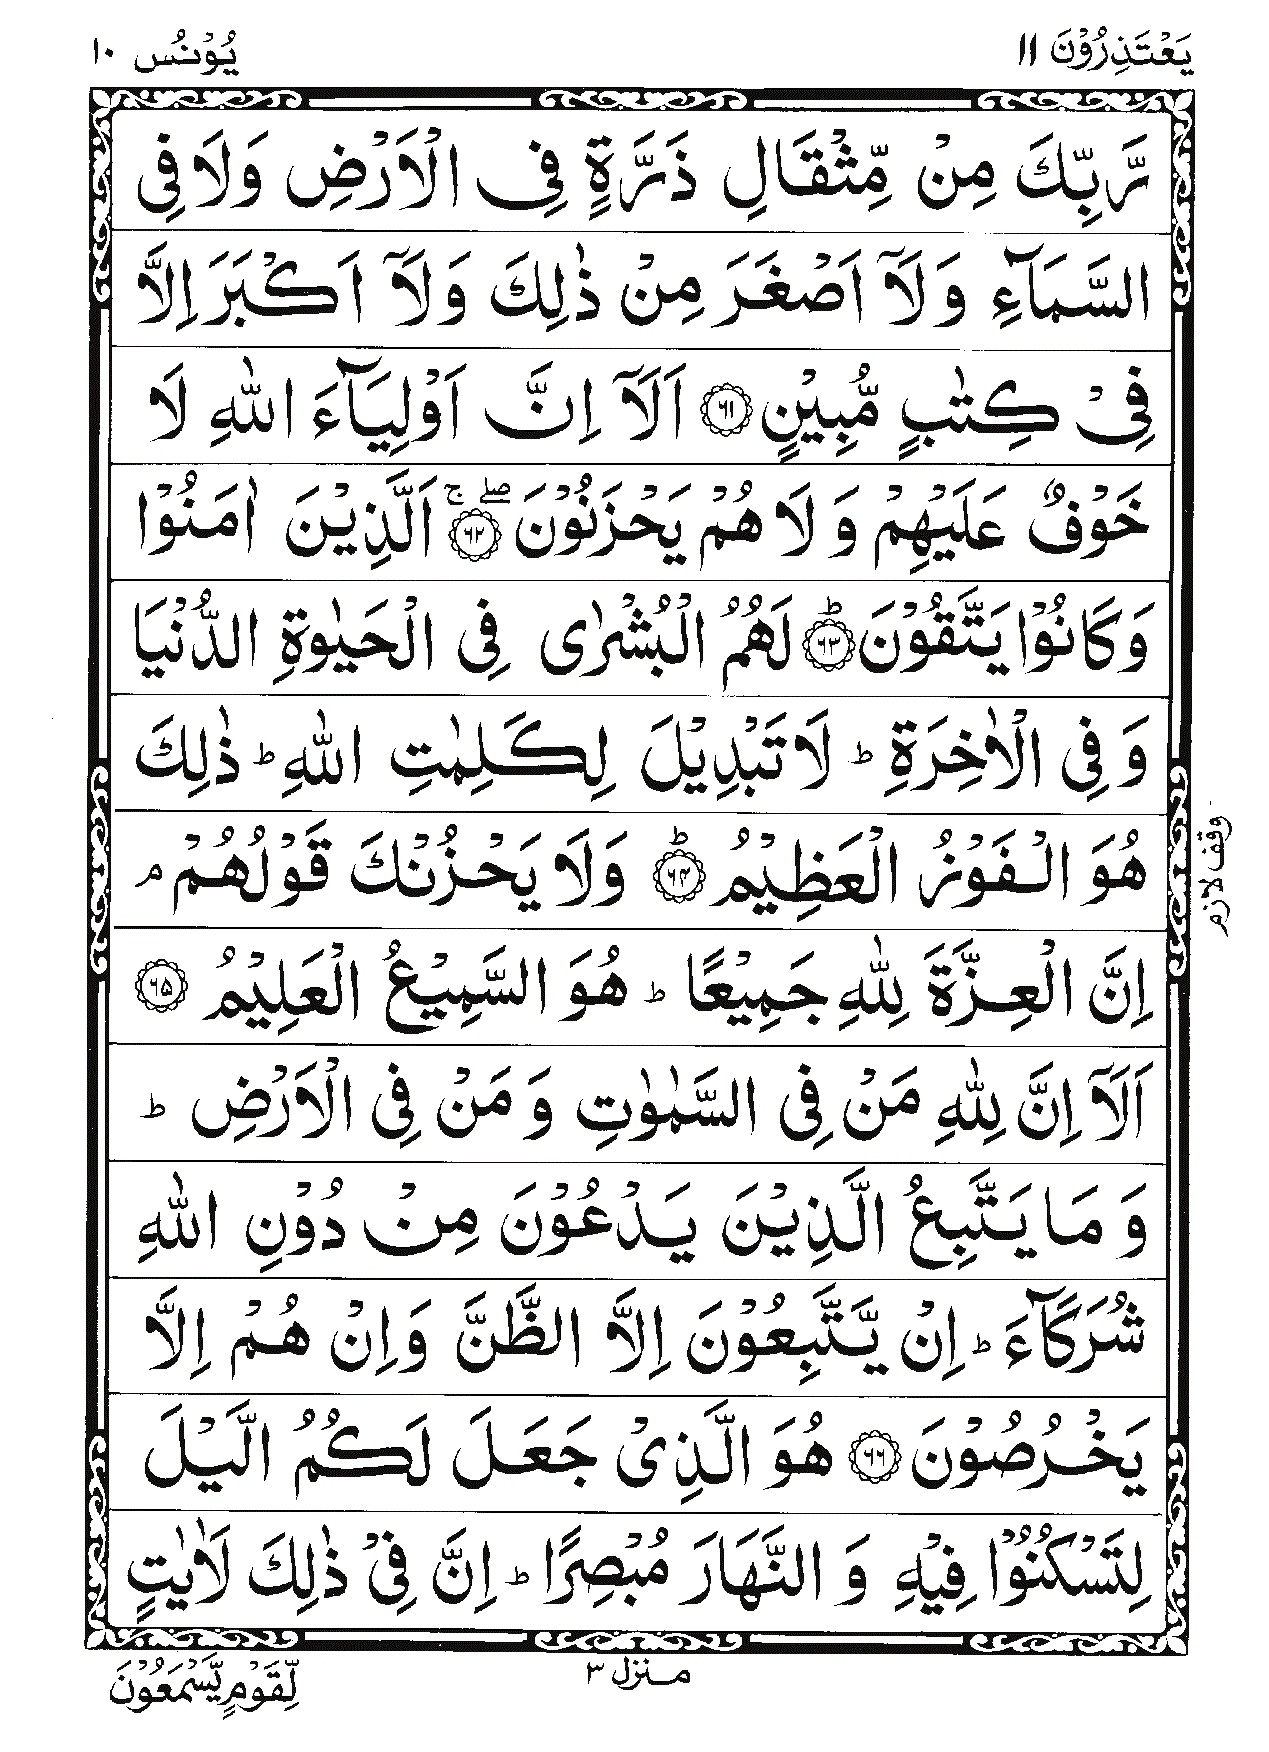 یَعْتَذِرُوْنَ ۱۱
یُوْنُس ۱۰
رَّبِّكَ مِنْ مِّثْقَالِ ذَرَّةٍ فِی الْاَرْضِ وَلَا فِی
السَّمَآءِ وَلَاۤ اَصْغَرَ مِنْ ذٰلِكَ وَلَاۤ اَكْبَرَ اِلَّا
فِیْ كِتٰبٍ مُّبِیْنٍ ﴿۶۱﴾ اَلَاۤ اِنَّ اَوْلِیَآءَ اللّٰهِ لَا
خَوْفٌ عَلَیْهِمْ وَلَا هُمْ یَحْزَنُوْنَ ۖۚ ﴿۶۲﴾ اَلَّذِیْنَ اٰمَنُوْا
وَكَانُوْا یَتَّقُوْنَ ؕ ﴿۶۳﴾ لَهُمُ الْبُشْرٰی فِی الْحَیٰوةِ الدُّنْیَا
وَفِی الْاٰخِرَةِ ؕ لَا تَبْدِیْلَ لِكَلِمٰتِ اللّٰهِ ؕ ذٰلِكَ
هُوَ الْفَوْزُ الْعَظِیْمُ ؕ ﴿۶۴﴾ وَلَا یَحْزُنْكَ قَوْلُهُمْ ۘ
وقف لازم
اِنَّ الْعِزَّةَ لِلّٰهِ جَمِیْعًا ؕ هُوَ السَّمِیْعُ الْعَلِیْمُ ﴿۶۵﴾
اَلَاۤ اِنَّ لِلّٰهِ مَنْ فِی السَّمٰوٰتِ وَمَنْ فِی الْاَرْضِ ؕ
وَمَا یَتَّبِعُ الَّذِیْنَ یَدْعُوْنَ مِنْ دُوْنِ اللّٰهِ
شُرَكَآءَ ؕ اِنْ یَّتَّبِعُوْنَ اِلَّا الظَّنَّ وَاِنْ هُمْ اِلَّا
یَخْرُصُوْنَ ﴿۶۶﴾ هُوَ الَّذِیْ جَعَلَ لَكُمُ الَّیْلَ
لِتَسْكُنُوْا فِیْهِ وَالنَّهَارَ مُبْصِرًا ؕ اِنَّ فِیْ ذٰلِكَ لَاٰیٰتٍ
منزل ۳
لِّقَوْمٍ یَّسْمَعُوْنَ